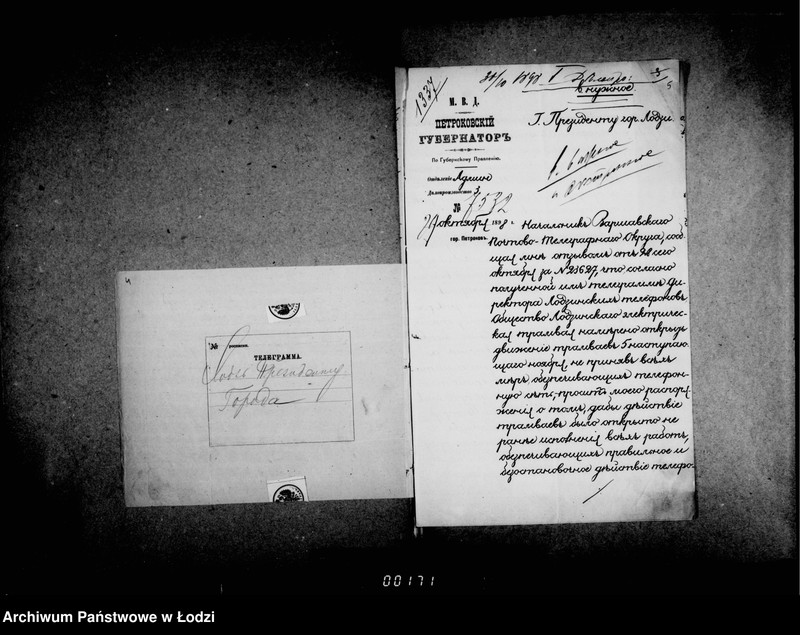 4
№
ТЕЛЕГРАММА.
Лодзь Президенту
Города
1337
31/10 1898 I
5
в нужное
М. В. Д.
ПЕТРОКОВСКІЙ
ГУБЕРНАТОРЪ
По Губернскому Правленію.
Отдѣленіе Админ
Дѣлопроизводство 3
№ 7532
октября 1898 г.
гор. Петроковъ.
Г. Президенту гор. Лодзи
Начальникъ Варшавскаго
Почтово-Телеграфнаго Округа, сооб-
щая мнѣ отзывомъ отъ 24 сего
октября за № 23627, что согласно
полученной имъ телеграммѣ Ди-
ректора Лодзинскихъ телефоновъ
Общество Лодзинскаго электричес-
кая трамвая намѣрено открыть
движеніе трамваевъ 5 наступаю-
щаго ноября, не принявъ всѣхъ
мѣръ обезпечивающихъ телефон-
ную сѣть, проситъ моего распоря-
женія о томъ, дабы дѣйствіе
трамваевъ было открыто не
ранѣе исполненія всѣхъ работъ,
обезпечивающихъ правильное и
безостановочное дѣйствіе телефо-
00171
Archiwum Państwowe w Łodzi